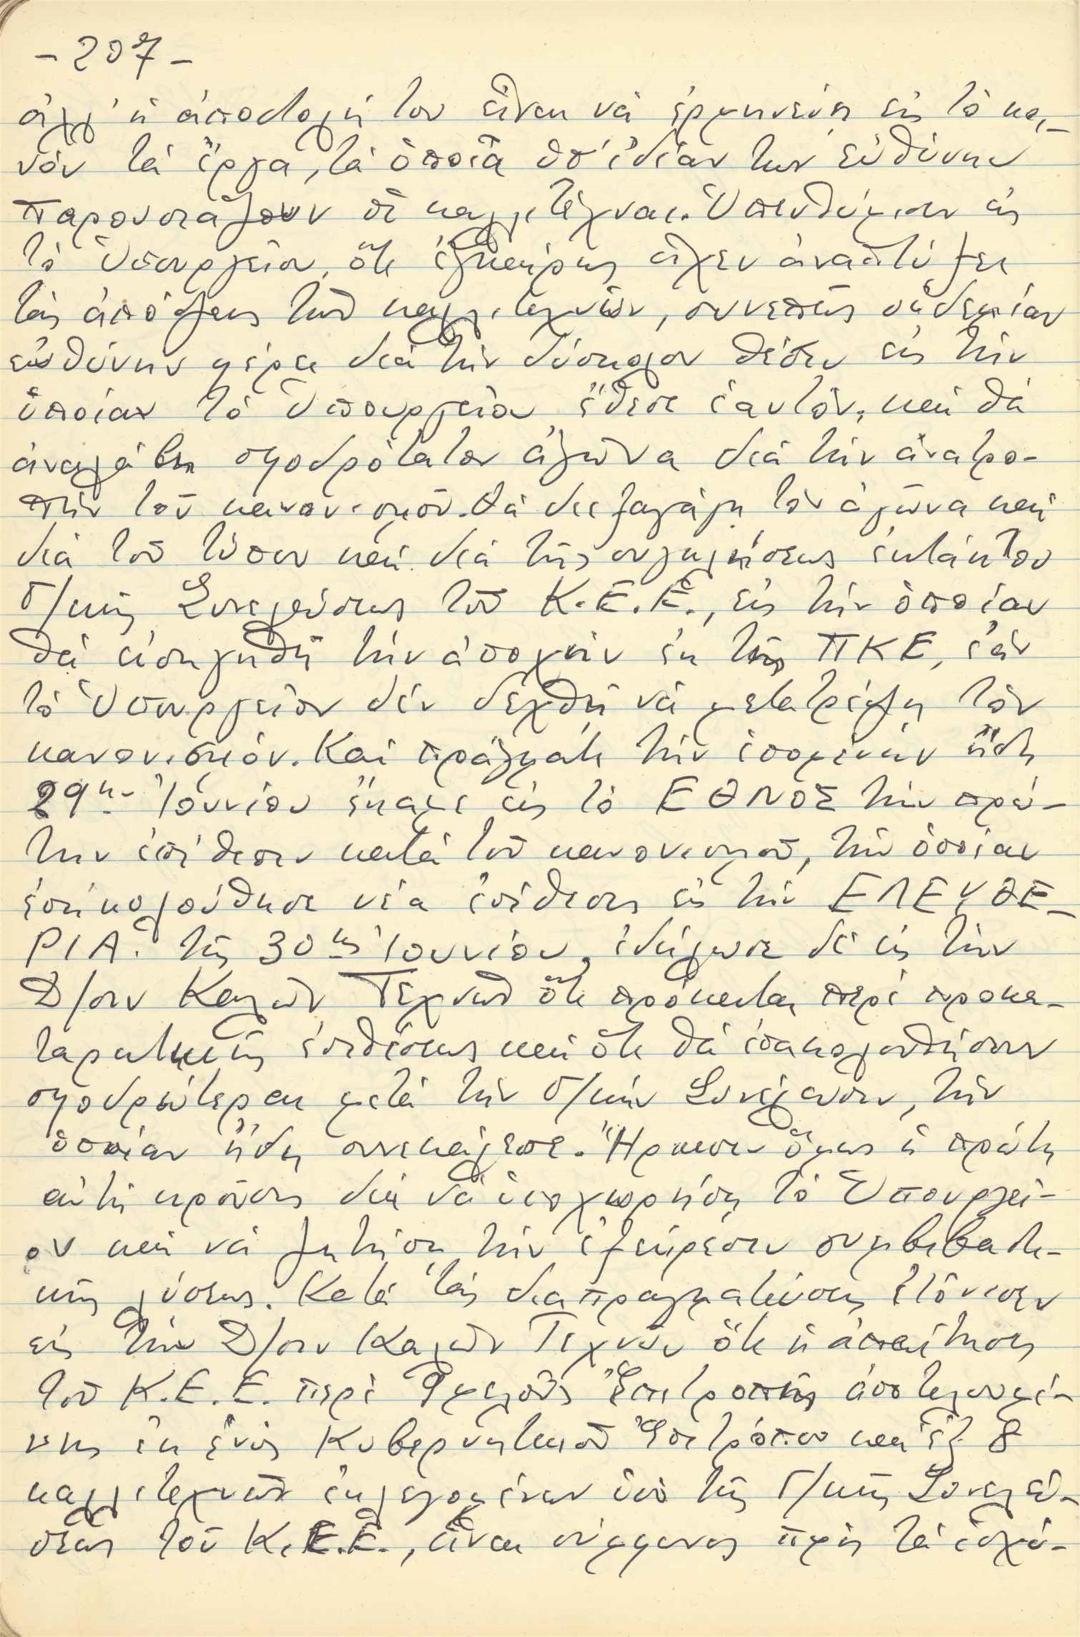 - 207 -
ἀλλ' ἡ ἀποστολή του εἶναι νά ἑρμηνεύη εἰς τό κοι-
νόν τά ἔργα, τά ὁποῖα ὑπ' ἰδίαν των εὐθύνην
παρουσιάζουν οἱ καλλιτέχναι. Ὑπενθύμισεν εἰς
τό Ὑπουργεῖον, ὅτι ἐγκαίρως εἶχεν ἀναπτύξει
τάς ἀπόψεις τῶν καλλιτεχνῶν, συνεπῶς οὐδεμίαν
εὐθύνην φέρει διά τήν δύσκολον θέσιν εἰς τήν
ὁποίαν τό Ὑπουργεῖον ἔθεσε ἑαυτόν, καί θά
ἀναλάβη σφοδρότατον ἀγῶνα διά τήν ἀνατρο-
πήν τοῦ κανονισμοῦ. Θά διεξαγάγη τόν ἀγῶνα καί
διά τοῦ τύπου καί διά τῆς συγκλήσεως ἐκτάκτου
Γ/κῆς Συνελεύσεως τοῦ Κ.Ε.Ε., εἰς τήν ὁποίαν
θά εἰσηγηθῆ τήν ἀποχήν ἐκ τῆς ΠΚΕ, ἐάν
τό Ὑπουργεῖον δέν δεχθῆ νά μετατρέψη τόν
κανονισμόν. Καί πράγματι τήν ἑπομένην ἤδη
29ην Ἰουνίου ἔκαμε εἰς τό ΕΘΝΟΣ τήν πρώ-
την ἐπίθεσιν κατά τοῦ κανονισμοῦ, τήν ὁποίαν
ἐπηκολούθησε νέα ἐπίθεσις εἰς τήν ΕΛΕΥΘΕ-
ΡΙΑ. τῆς 30ῆς Ἰουνίου, ἐδήλωσε δέ εἰς τήν
Δ/σιν Καλῶν Τεχνῶν ὅτι πρόκειται περί προκα-
ταρκτικῆς ἐπιθέσεως καί ὅτι θά ἐπακολουθήσουν
σφοδρώτεραι μετά τήν Γ/κήν Συνέλευσιν, τήν
ὁποίαν ἤδη συνεκάλεσε. Ἤρκεσεν ὅμως ἡ πρώτη
αὐτή κροῦσις διά νά ὑποχωρήση τό Ὑπουργεῖ-
ον καί νά ζητήση τήν ἐξεύρεσιν συμβιβαστι-
κῆς λύσεως. Κατά τάς διαπραγματεύσεις ἐτόνισεν
εἰς τήν Δ/σιν Καλῶν Τεχνῶν ὅτι ἡ ἀπαίτησις
τοῦ Κ.Ε.Ε. περί 9μελοῦς Ἐπιτροπῆς ἀποτελουμέ-
νης ἐκ ἑνός Κυβερνητικοῦ Ἐπιτρόπου καί ἐξ 8
καλλιτεχνῶν ἐκλεγομένων ὑπό τῆς Γ/κῆς Συνελεύ-
σεως τοῦ Κ.Ε.Ε., εἶναι σύμφωνος πρός τά ἰσχύ-